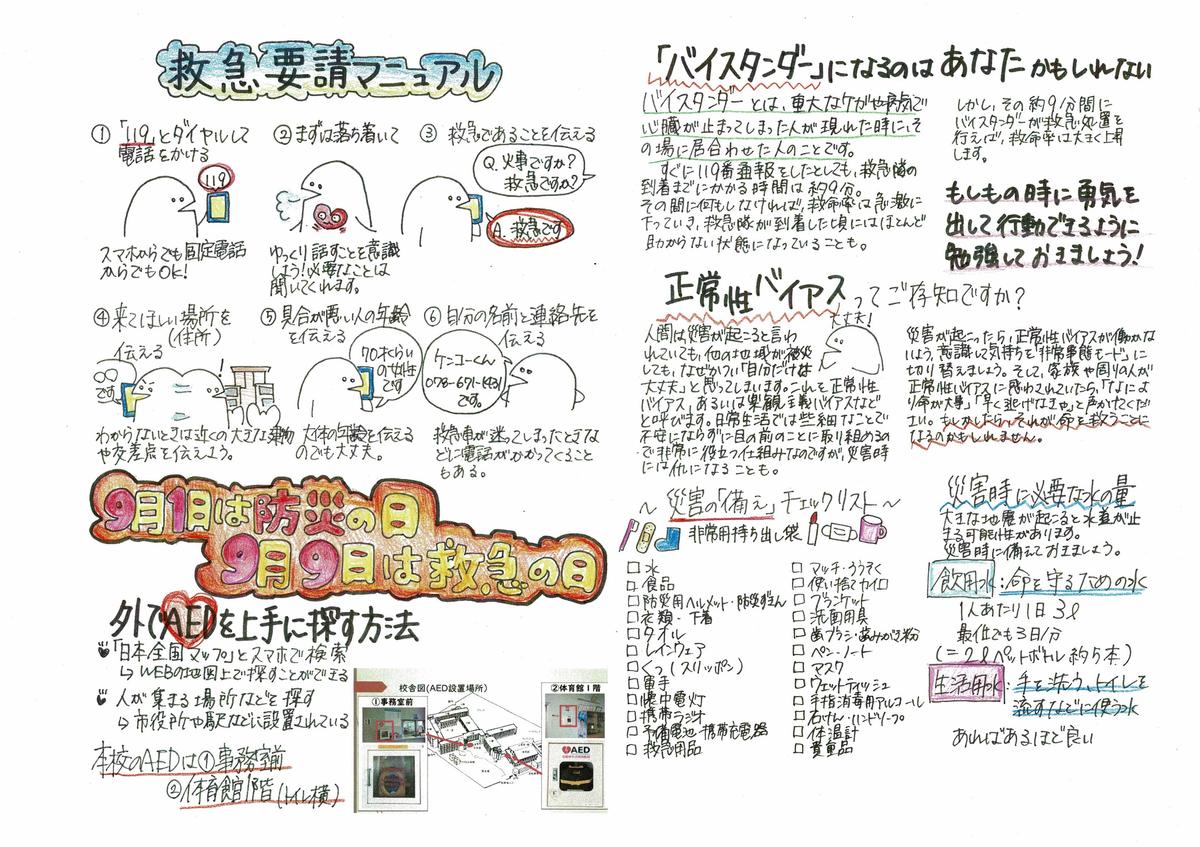 救急要請マニュアル
①「119」とダイヤルして
電話をかける
119
スマホからでも固定電話
からでもOK!
②まずは落ち着いて
ゆっくり話すことを意識
しよう!必要なことは
聞いてくれます。
③ 救急であることを伝える
Q.火事ですか?
救急ですか?
A.救急です
④来てほしい場所を
(住所)
伝える
○○
です
わからないときは近くの大きな建物
や交差点を伝えよう。
⑤具合が悪い人の年齢
を伝える
70才くらい
の女性
です
大体の年齢を伝える
のでも大丈夫。
⑥自分の名前と連絡先を
伝える
ケンコーくん
です。
救急車が迷ってしまったときな
どに電話がかかってくること
もある。
9月1日は防災の日
9月9日は救急の日
外でAEDを上手に探す方法
「日本全国マップ」とスマホで検索
↳WEBの地図上で探すことができる
人が集まる場所などを探す
↳市役所や駅などに設置されている
本校のAEDは①事務室前
②体育館1階(トイレ横)
校舎図(AED設置場所)
①事務室前
②体育館1階
AED
「バイスタンダー」になるのは あなた かもしれない
バイスタンダーとは、重大なケガや病気で
心臓が止まってしまった人が現れた時に、そ
の場に居合わせた人のことです。
すぐに119番通報をしたとしても、救急隊の
到着までにかかる時間は約9分。
その間に何もしなければ、救命率は急激に
下っていき、救急隊が到着した頃にはほとんど
助からない状態になっていることも。
しかし、その約9分間に
バイスタンダーが救急処置を
行えば、救命率は大きく上昇
します。
もしもの時に勇気を
出して行動できるように
勉強しておきましょう!
正常性バイアスってご存知ですか?
大丈夫!
人間は災害が起こると言わ
れていても、他の地域が被災
しても、なぜかつい「自分だけは
大丈夫」と思ってしまいます。これを正常性
バイアス」あるいは楽観主義バイアスなど
と呼びます。日常生活では些細なことで
不安にならずに目の前のことに取り組めるの
で非常に役立つ仕組みなのですが、災害時
には仇になることも。
災害が起こったら、正常性バイアスが働かな
いよう、意識して気持ちを「非常事態モード」に
切り替えましょう。そして、家族や周りの人が
正常性バイアスに惑わされていたら、「なによ
り命が大事」「早く逃げなきゃ」と声かけてくだ
さい。もしかしたら、それが命を救うことに
なるのかもしれません。
～災害の「備え」チェックリスト～
非常用持ち出し袋
□水
□食品
□防災用ヘルメット・防災ずきん
□衣類・下着
□タオル
□レインウェア
□くつ(スリッポン)
□軍手
□懐中電灯
□携帯ラジオ
□予備電池・携帯充電器
□救急用品
□マッチ・ろうそく
□使い捨てカイロ
□ブランケット
□洗面用具
□歯ブラシ・歯みがき粉
□ペン・ノート
□マスク
□ウェットティッシュ
□手指消毒用アルコール
□石けん・ハンドソープ
□体温計
□貴重品
災害時に必要な水の量
大きな地震が起こると水道が止
まる可能性があります。
災害時に備えておきましょう。
飲用水:命を守るための水
1人あたり1日3ℓ
最低でも3日分
(=2ℓペットボトル約5本)
生活用水:手を洗う、トイレを
流すなどに使う水
あればあるほど良い